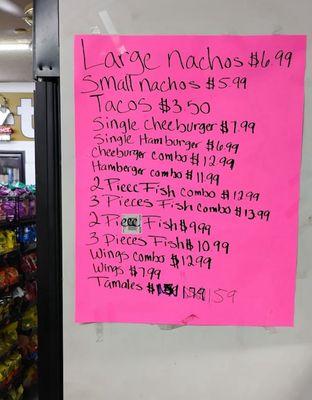 Large nachos $6.99
Small nachos $5.99
Tacos $3.50
Single Cheeburger $7.99
Single Hamburger $6.99
Cheeburger combo $12.99
Hamberger combo $11.99
2 Piece Fish combo $12.99
3 Pieces Fish combo $13.99
2 Fish $9.99
3 Pieces Fish $10.99
Wings combo $12.99
Wings $7.99
Tamales $ 1.59